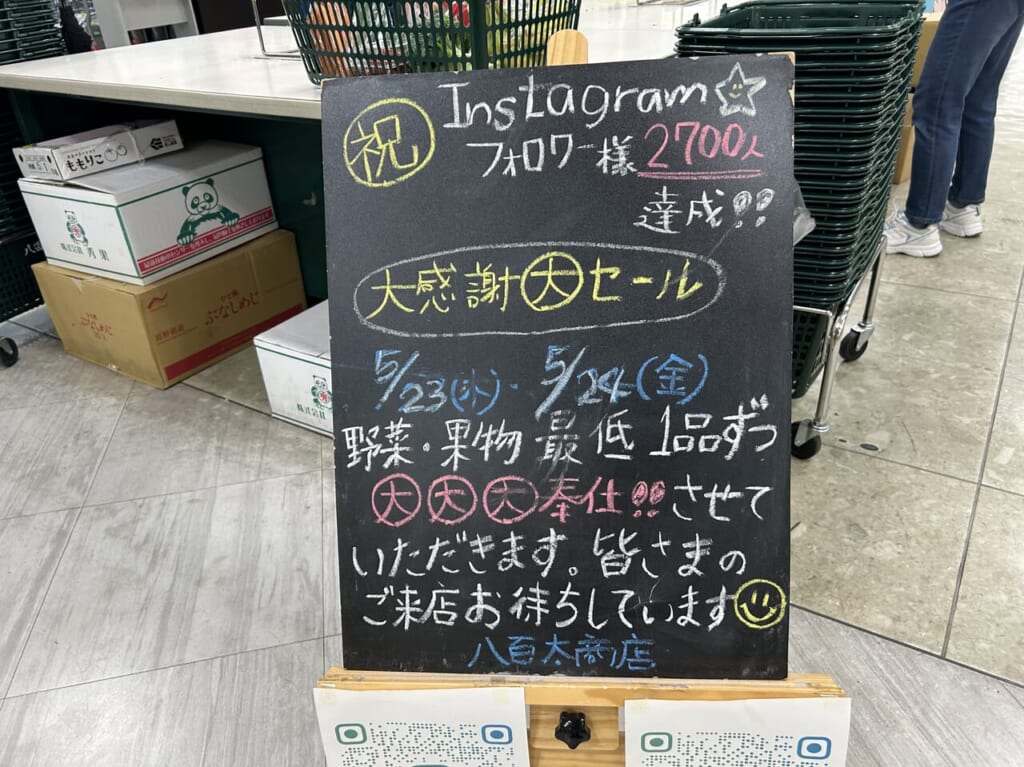 祝
Instagram
フォロワー様 2700人
達成!!
大感謝大セール
5/23(水)・5/24(金)
野菜・果物 最低 1品ずつ
大大大奉仕!! させて
いただきます。皆さまの
ご来店お待ちしています
八百太商店
ももりこ
株式会社 秀果
ぶなしめじ
株式会社